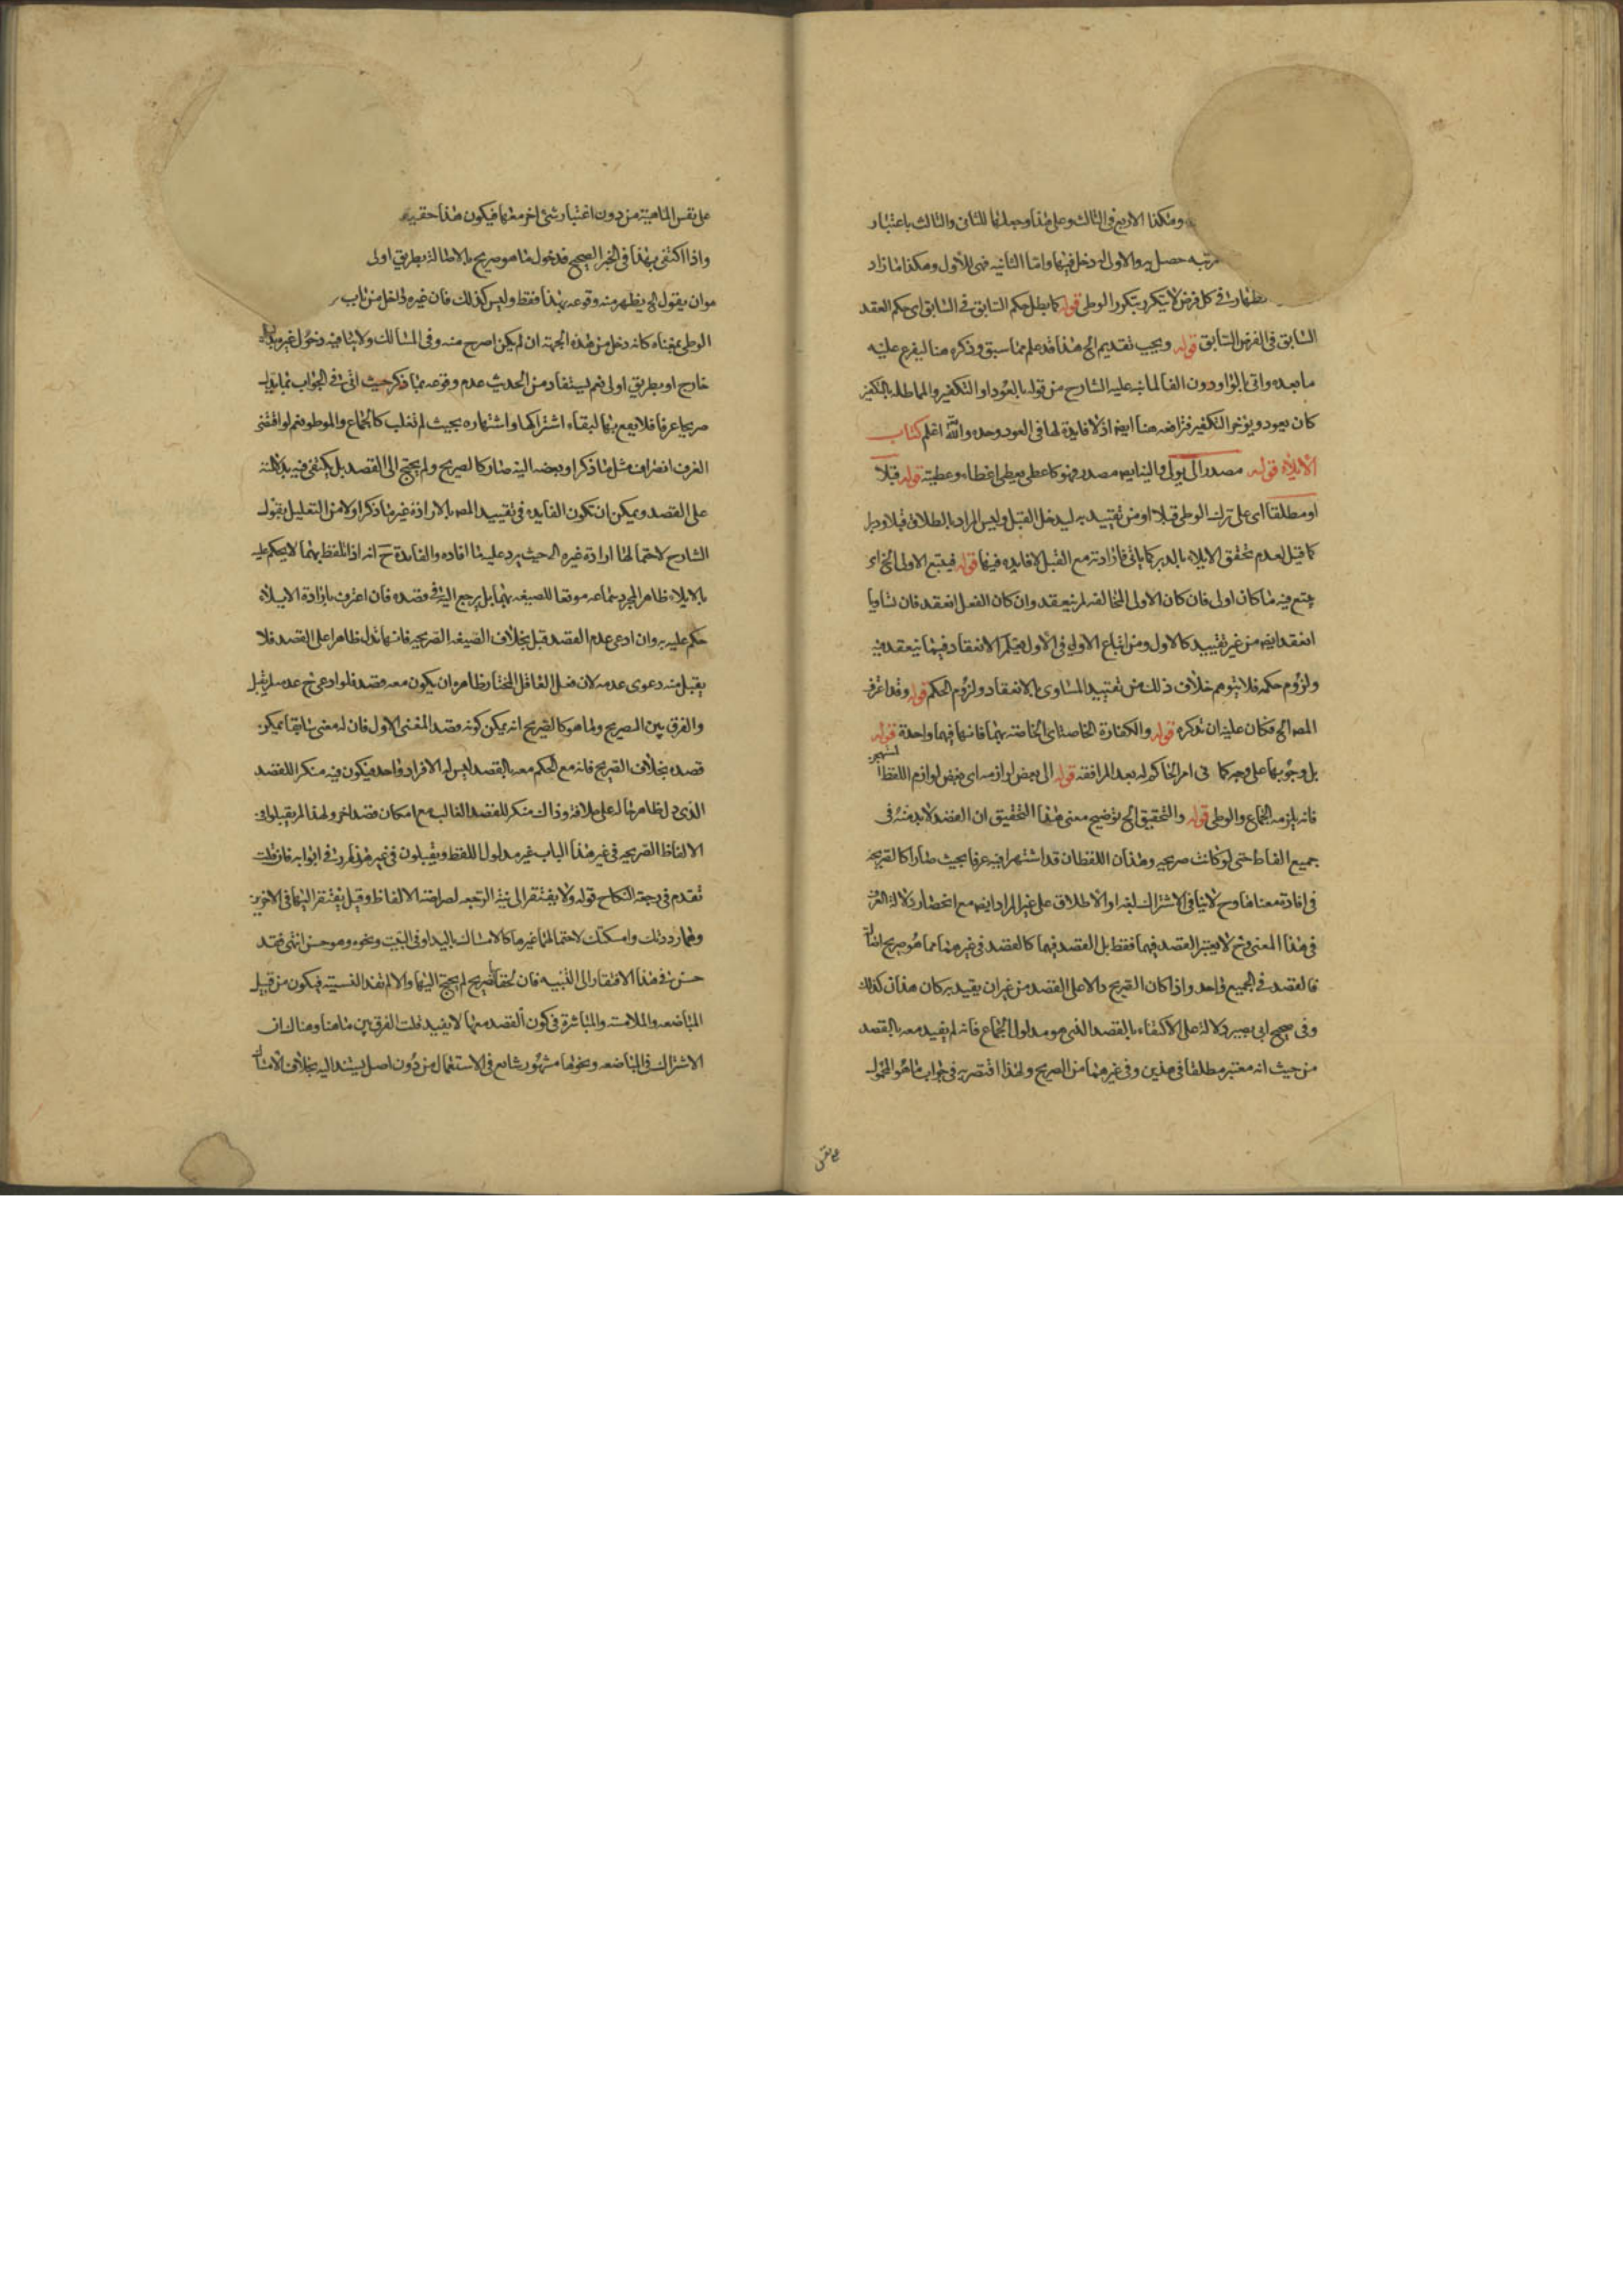 وهكذا الاربع فى الثالث وعلى هذا وجعلها للثانى والثالث باعتبار
مرتبه حصل به والاول له دخل فيها واما الثانيه فهى للاول وهكذا ما زاد
فى كل فرض لا يتكرر بتكرر الوطى قوله كما يطل حكم السابق فى السابق اى حكم العقد
السابق فى الفرض السابق قوله ويجب تقديم الخ هذا قد علم مما سبق وذكره هنا ليفرع عليه
ما بعده واتى بالواو دون الفا لما نبه عليه الشارح من قوله بالعود او التكفير والمماطله بالتكفير
كان يعود ويؤخر التكفير هنا ايضا اذ لا فايدة لها فى العود وحده والله اعلم كتاب
الايلاء قوله مصدر الى يولى والينا ايضا مصدر فهو كاعطى يعطى اعطاء وعطية قوله قبلا
او مطلقا اى على ترك الوطى قبلا او من تقييد به ليدخل القبل وليس المراد بالطلاق قبلا ودبرا
كما قيل لعدم تحقق الايلاء بالدبر كما ياتى فارادته مع القبل لا فايده فيها قوله فيتبع الاولى الخ اى
يتبع فيه ما كان اولى فان كان الاولى المخالفه لم ينعقد وان كان الفعل انعقد فان تساويا
انعقد ايضا من غير تقييد كالاول ومن اتباع الاولى فى الاول فيكم الانعقاد فيما ينعقد فيه
ولزوم حكمه فلا يتوهم خلاف ذلك من تقييد المساوى بالانعقاد ولزوم الحكم قوله وقد اعترف
المص الخ فكان عليه ان تذكره قوله والكفارة الخاصة اى الخاصة بهما فانها فيهما واحدة قوله
بل وجوبها على وجه كما فى امر الحاكم له بعد المرافقه قوله الى بعض لوازمه اى بعض لوازم اللفظ
فانه يلزمه الجماع والوطى قوله والتحقيق الخ توضيح معنى هذا التحقيق ان القصد لا بد منه فى
جميع الفاظ حتى لو كانت صريحه وهذان اللفظان قد اشتهرا فيه عرفا بحيث صارا كالصريحه
فى افادة معناها وح لا ينافى الاشتراك لغه او الاطلاق على غير المراد ايضا مع انحصار دلالة العرف
فى هذا المعنى وح لا يعتبر القصد فيهما فقط بل القصد فيهما كالقصد فى غيرهما مما هو صريح
فالقصد فى الجميع واحد واذا كان الصريح دالا على القصد من غير ان يقيد به كان هذان كذلك
وفى صحيح ابى بصير دلالة على الاكتفاء بالقصد الذى هو مدلول الجماع فانه لم يقيد معه بالقصد
من حيث انه معتبر مطلقا فى هذين وفى غيرهما من الصريح ولهذا اقتصر به فى جواب ما هو المحمول
على نفس
على نفس الماهية من دون اعتبار شئ اخر معها فيكون هذا
واذا اكتفى بهذا فى الخبر الصحيح فدخول ما هو صريح بالاصالة بطريق اولى
هو ان يقول الخ يظهر منه وقوعه بهذا فقط وليس كذلك فان غيره داخل من باب
الوطى بمعناه كانه دخل من هذه الجهة ان لم يكن اصرح منه وفى المسالك ولا ينافيه دخول غيره بدليل
خارج او بطريق اولى نعم يستفاد من الحديث عدم وقوعه بما ذكر حيث اتى فى الجواب بما يدل
صريحا عرفا فلا يقع بهما لبقاء اشتراكهما واشتهاره بحيث لم تغلب كالجماع والموطو نعم لو اقتضى
العرف انصراف مثل ما ذكر او بعضه اليه صار كالصريح ولم يحتج الى القصد بل يكتفى فيه بدلالته
على القصد ويمكن ان تكون الفايده فى تقييد المص بالارادة غير ما ذكر اولا من التعليل بقول
الشارح لاحتمالها ارادة غيره الخ حيث يرد عليه ما افاده والفايدة ح انه اذا تلفظ بهما لا يحكم عليه
بالايلاء ظاهرا لمجرد سماعه موقعا للصيغه بهما بل يرجع اليه فى قصده فان اعترف بارادة الايلاء
حكم عليه به وان ادعى عدم القصد قبل بخلاف الصيغه الصريحه فانها تدل ظاهرا على القصد فلا
يقبل منه دعوى عدمه لان فعل العاقل المختار ظاهره ان يكون معه قصد فلو ادعى ح عدمه لم يقبل
والفرق بين الصريح وما هو كالصريح انه يمكن كونه قصد المعنى الاول فان له معنى سابقا يمكن
قصده بخلاف الصريح فانه مع الحكم معه بالقصد ليس له الا فرد واحد فيكون فيه منكرا للقصد
الذى دل ظاهر حاله على خلافه وذاك منكر للقصد الغالب مع امكان قصد اخر ولهذا لم يقبلوا فى
الالفاظ الصريحه فى غير هذا الباب غير مدلول اللفظ ويقبلون فى غيره فى ابوابه فان قلت
تقدم فى رجعة النكاح قوله ولا يفتقر الى نية الرجعه لصراحة الالفاظ وقيل يفتقر اليها فى الاخيرين
وهما رددتك وامسكتك لاحتمالهما غيرها كالامساك باليد او فى البيت ونحوه وهو حسن انتهى فقد
حسن فى هذا الافتقار الى النية فان لحقا بالصريح لم يحتج اليها والا لم تفد النية فيكون من قبيل
المباضعه والملامسه والمباشرة فى كون القصد معها لا يفيد قلت الفرق بين ما هنا وهناك ان
الاشتراك فى المباضعه ونحوها مشهور شائع فى الاستعمال من دون اصل يستند اليه بخلاف